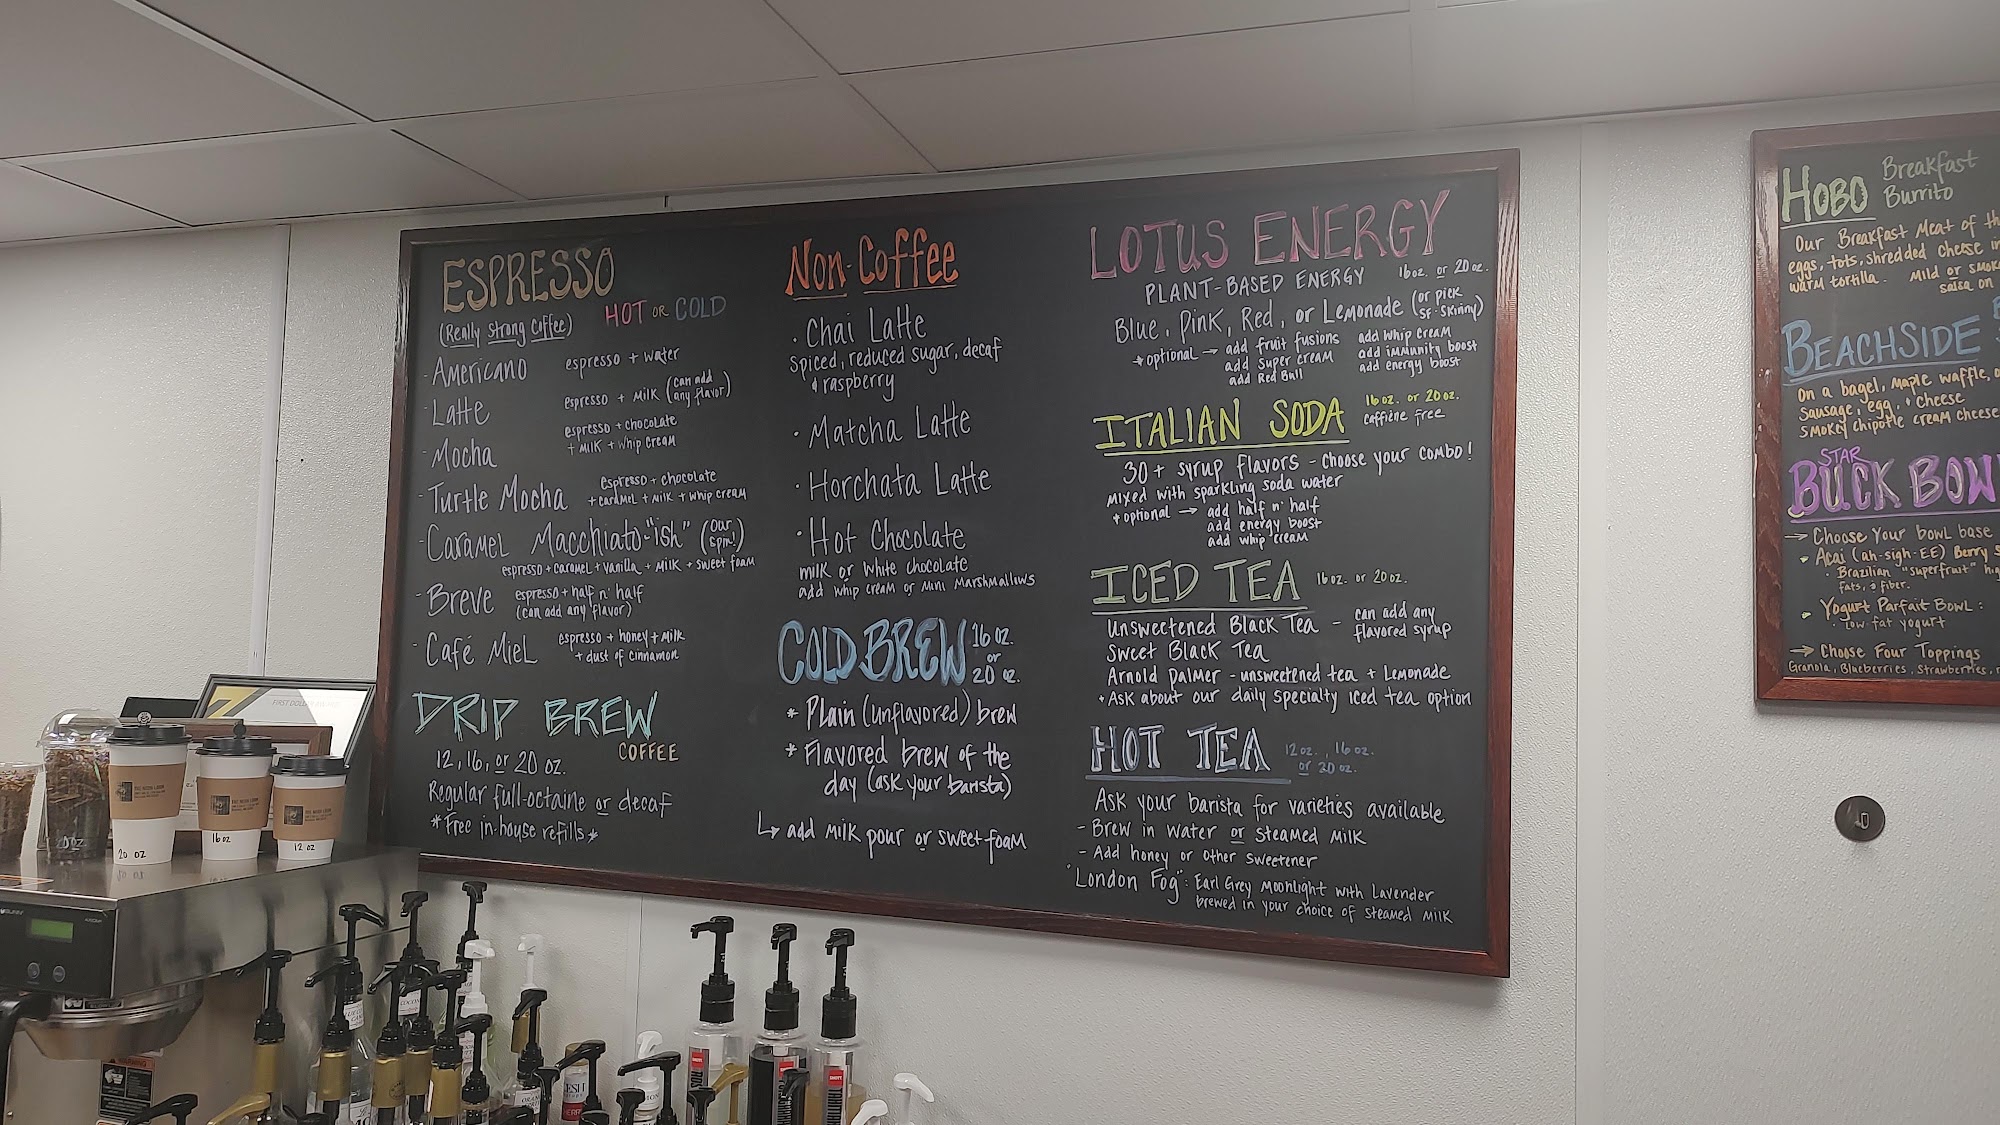 ESPRESSO
(Really Strong Coffee) HOT OR COLD
- Americano espresso + water
- Latte espresso + milk (can add any flavor)
- Mocha espresso + chocolate
+ milk + whip cream
- Turtle Mocha espresso + chocolate
+ caramel + milk + whip cream
- Caramel Macchiato-"ish" (our spin!)
espresso + caramel + vanilla + milk + sweet foam
- Breve espresso + half n' half
(can add any flavor)
- Café Miel espresso + honey + milk
+ dust of cinnamon
DRIP BREW
COFFEE
12, 16, or 20 oz.
Regular full-octaine or decaf
*Free in-house refills*
Non-Coffee
· Chai Latte
spiced, reduced sugar, decaf
+ raspberry
· Matcha Latte
· Horchata Latte
· Hot Chocolate
milk or white chocolate
add whip cream or mini marshmallows
COLD BREW 16 oz. or 20 oz.
* Plain (unflavored) brew
* Flavored brew of the
day (ask your barista)
↳ add milk pour or sweet foam
LOTUS ENERGY
PLANT-BASED ENERGY 16 oz. or 20 oz.
Blue, Pink, Red, or Lemonade (or pick SF-Skinny)
*optional → add fruit fusions add whip cream
add super cream add immunity boost
add Red Bull add energy boost
ITALIAN SODA 16 oz. or 20 oz.
caffiene free
30+ syrup flavors - choose your combo!
mixed with sparkling soda water
*optional → add half n' half
add energy boost
add whip cream
ICED TEA 16 oz. or 20 oz.
Unsweetened Black Tea - can add any
flavored syrup
Sweet Black Tea
Arnold Palmer - unsweetened tea + Lemonade
*Ask about our daily specialty iced tea option
HOT TEA 12 oz., 16 oz.
or 20 oz.
Ask your barista for varieties available
- Brew in water or steamed milk
- Add honey or other sweetener
"London Fog": Earl Grey Moonlight with Lavender
brewed in your choice of steamed milk
HOBO Breakfast
Burrito
Our Breakfast Meat of
eggs, tots, shredded cheese
warm tortilla. Mild or
salsa on
BEACHSIDE
on a bagel, maple waffle,
sausage, egg, + cheese
smokey chipotle cream cheese
STAR
BUCK BOW
→ Choose Your bowl base
· Acai (ah-sigh-EE) Berry
· Brazilian "superfruit"
fats, & fiber.
· Yogurt Parfait Bowl:
· Low-fat yogurt
→ Choose Four Toppings
Granola, Blueberries, Strawberries,
20 oz
20 oz
16 oz
12 oz